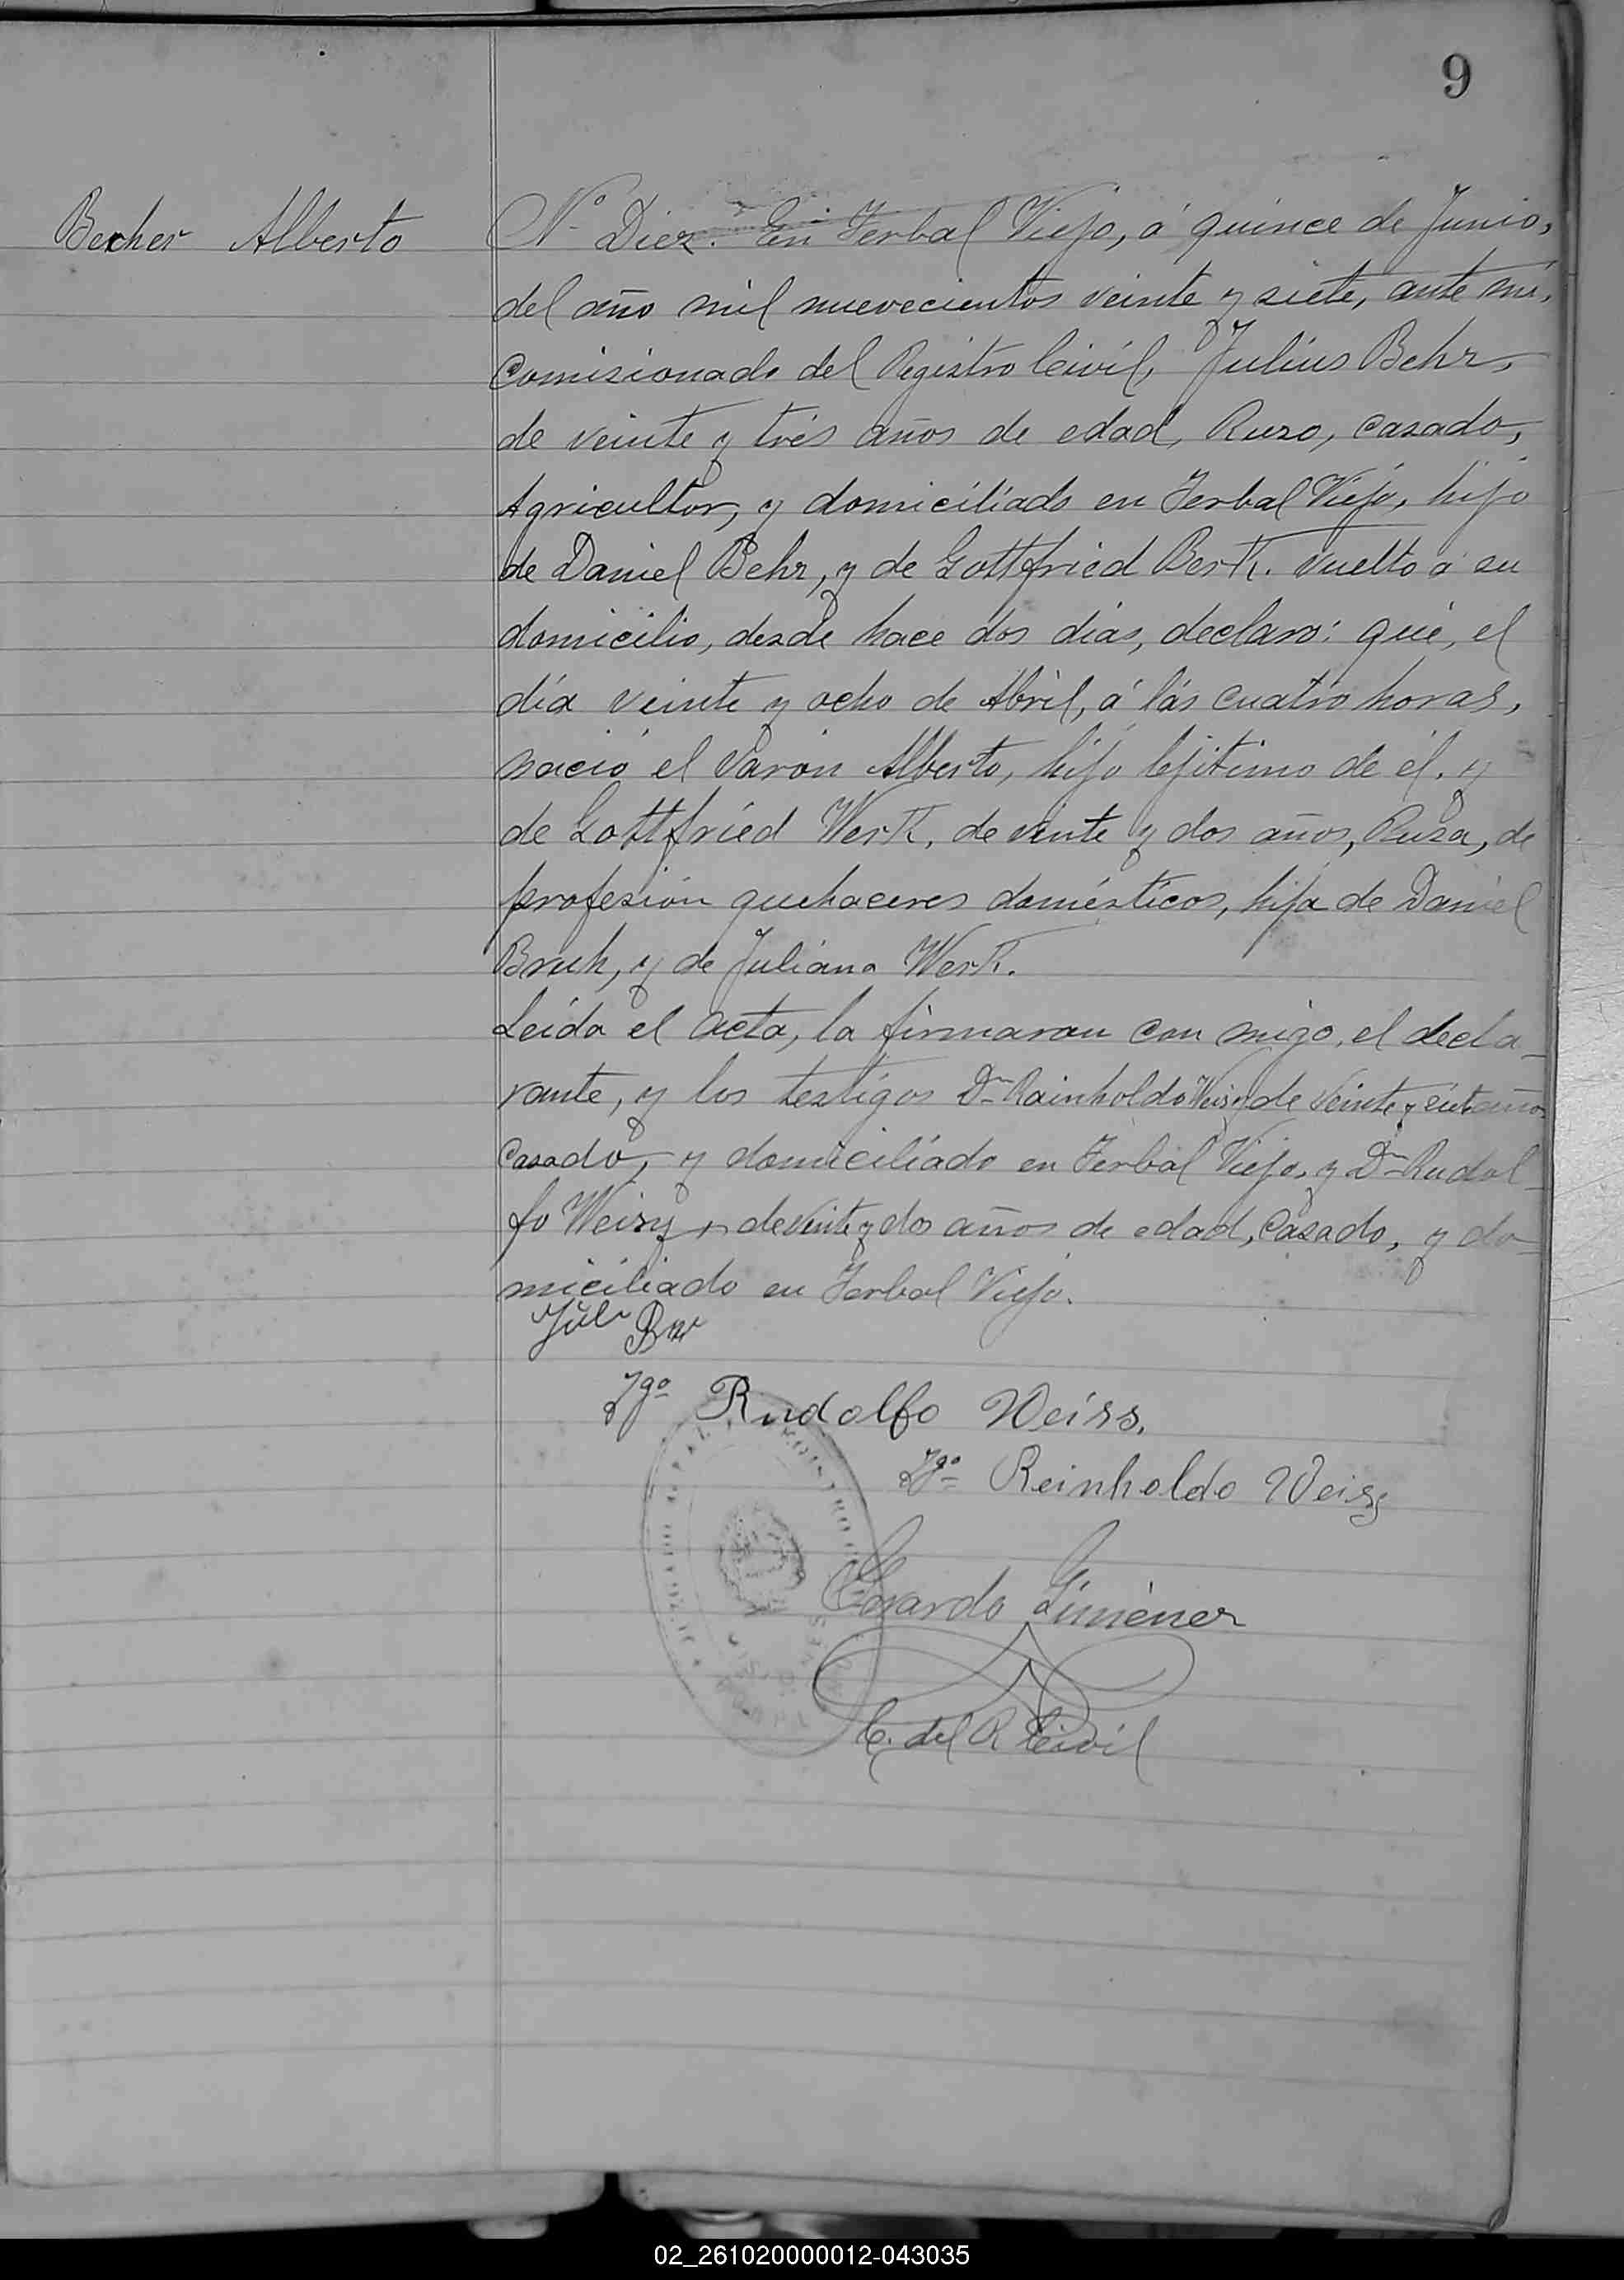 9
Becher Alberto
Nº Diez. En Yerbal Viejo, á quince de Junio,
del año mil nuevecientos veinte y siete, ante mi,
Comisionado del Registro Civil, Julius Behr,
de veinte y trés años de edad, Ruso, casado,
Agricultor, y domiciliado en Yerbal Viejo, hijo
de Daniel Behr, y de Gottfried Berk. vuelto á su
domicilio, desde hace dos dias, declaro: que, el
día veinte y ocho de Abril, á lás cuatro horas,
nació el Varón Alberto, hijo lejitimo de él. y
de Gottfried Werk, de veinte y dos años, Rusa, de
profesión quehaceres domésticos, hija de Daniel
Bruk, y de Juliana Werk.
Leída el Acta, la firmaron con migo, el decla-
rante, y los testigos Dn Rainholdo Weisz de Veinte y siete años
Casado, y domiciliado en Yerbal Viejo, y Dn Rudol-
fo Weisz, de veinte y dos años de edad, Casado, y do-
miciliado en Yerbal Viejo.
Tgo Rudolfo Weiss.
Tgo Reinholdo Weiss
Gerardo Giménez
C. del R. Civil
02_261020000012-043035